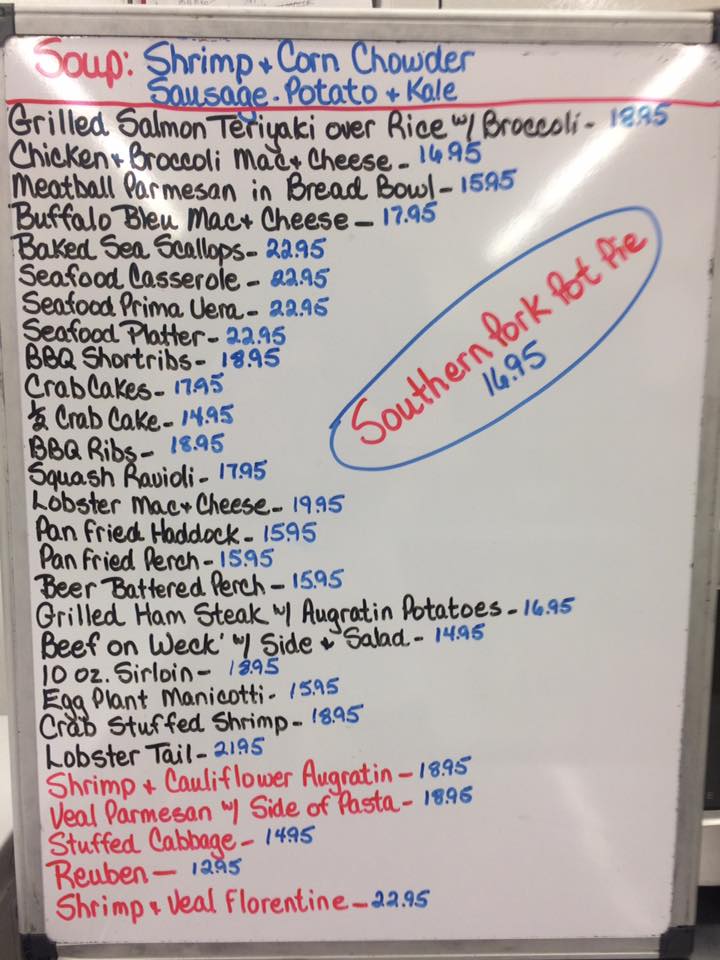 Soup: Shrimp + Corn Chowder
Sausage. Potato + Kale
Grilled Salmon Teriyaki over Rice w/ Broccoli - 18.95
Chicken + Broccoli Mac + Cheese - 16.95
Meatball Parmesan in Bread Bowl - 15.95
Buffalo Bleu Mac + Cheese - 17.95
Baked Sea Scallops - 22.95
Seafood Casserole - 22.95
Seafood Prima Vera - 22.95
Seafood Platter - 22.95
BBQ Shortribs - 18.95
Crab Cakes - 17.95
1/2 Crab Cake - 14.95
BBQ Ribs - 18.95
Squash Ravioli - 17.95
Lobster Mac + Cheese - 19.95
Pan Fried Haddock - 15.95
Pan Fried Perch - 15.95
Beer Battered Perch - 15.95
Grilled Ham Steak w/ Augratin Potatoes - 16.95
Beef on Weck' w/ Side + Salad - 14.95
10 oz. Sirloin - 18.95
Egg Plant Manicotti - 15.95
Crab Stuffed Shrimp - 18.95
Lobster Tail - 21.95
Shrimp + Cauliflower Augratin - 18.95
Veal Parmesan w/ Side of Pasta - 18.95
Stuffed Cabbage - 14.95
Reuben - 12.95
Shrimp + Veal Florentine - 22.95
Southern Pork Pot Pie
16.95